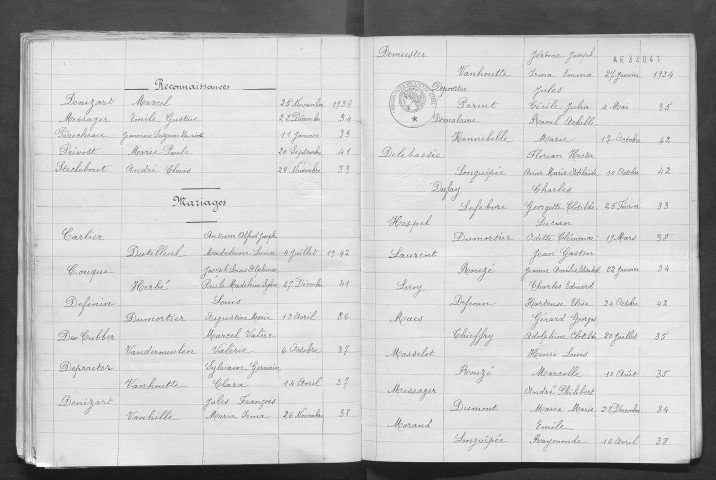 Reconnaissances
Denizart Marcel 28 Novembre 1938
Messager Emile Gustave 22 Décembre 34
Pérocheau 11 Janvier 33
Prévost Marie Paule 20 Septembre 41
Steclebout André Clovis 28 Novembre 33
Mariages
Carlier Antoine Alfred Joseph
Dutilleul Madeleine Louise 4 Juillet 1942
Couque Joseph Louis Alphonse
Herbé Paule Madeleine 27 Décembre 41
Defenin Louis
Dumortier Augustine Marie 13 Avril 36
De Cubber Marcel Valère
Vandermeulen Valérie 6 Octobre 37
Depraeter Sylvain Germain
Vanhoutte Clara 14 Avril 37
Denizart Jules François
Vanhille Maria Irma 26 Novembre 38
Demeester Jérôme Joseph
AE 32041
Vanhoutte Irma Emma 27 Janvier 1934
Depoorter Jules
Parent Cécile Julia 4 Mai 35
Demalaine Raoul Achille
Hennebelle Marie 17 Octobre 42
Delebassée Florian Hector
Longuépée Anne Marie Adélaïde 10 Octobre 42
Dufay Charles
Lefebvre Georgette Clotilde 25 Février 33
Hespel Lucien
Dumortier Odette Clémence 19 Mars 38
Laurent Jean Gaston
Rouzé Jeanne 22 Janvier 34
Leroy Charles Edouard
Defenin Hortense Elise 24 Octobre 42
Maes Gérard Georges
Chieffry Adolphine Clotilde 20 Juillet 35
Masselot Henri Louis
Rouzé Marcelle 10 Août 35
Messager André Philibert
Dumont Maria Marie 28 Décembre 34
Morand Emile
Longuépée Raymonde 16 Avril 38